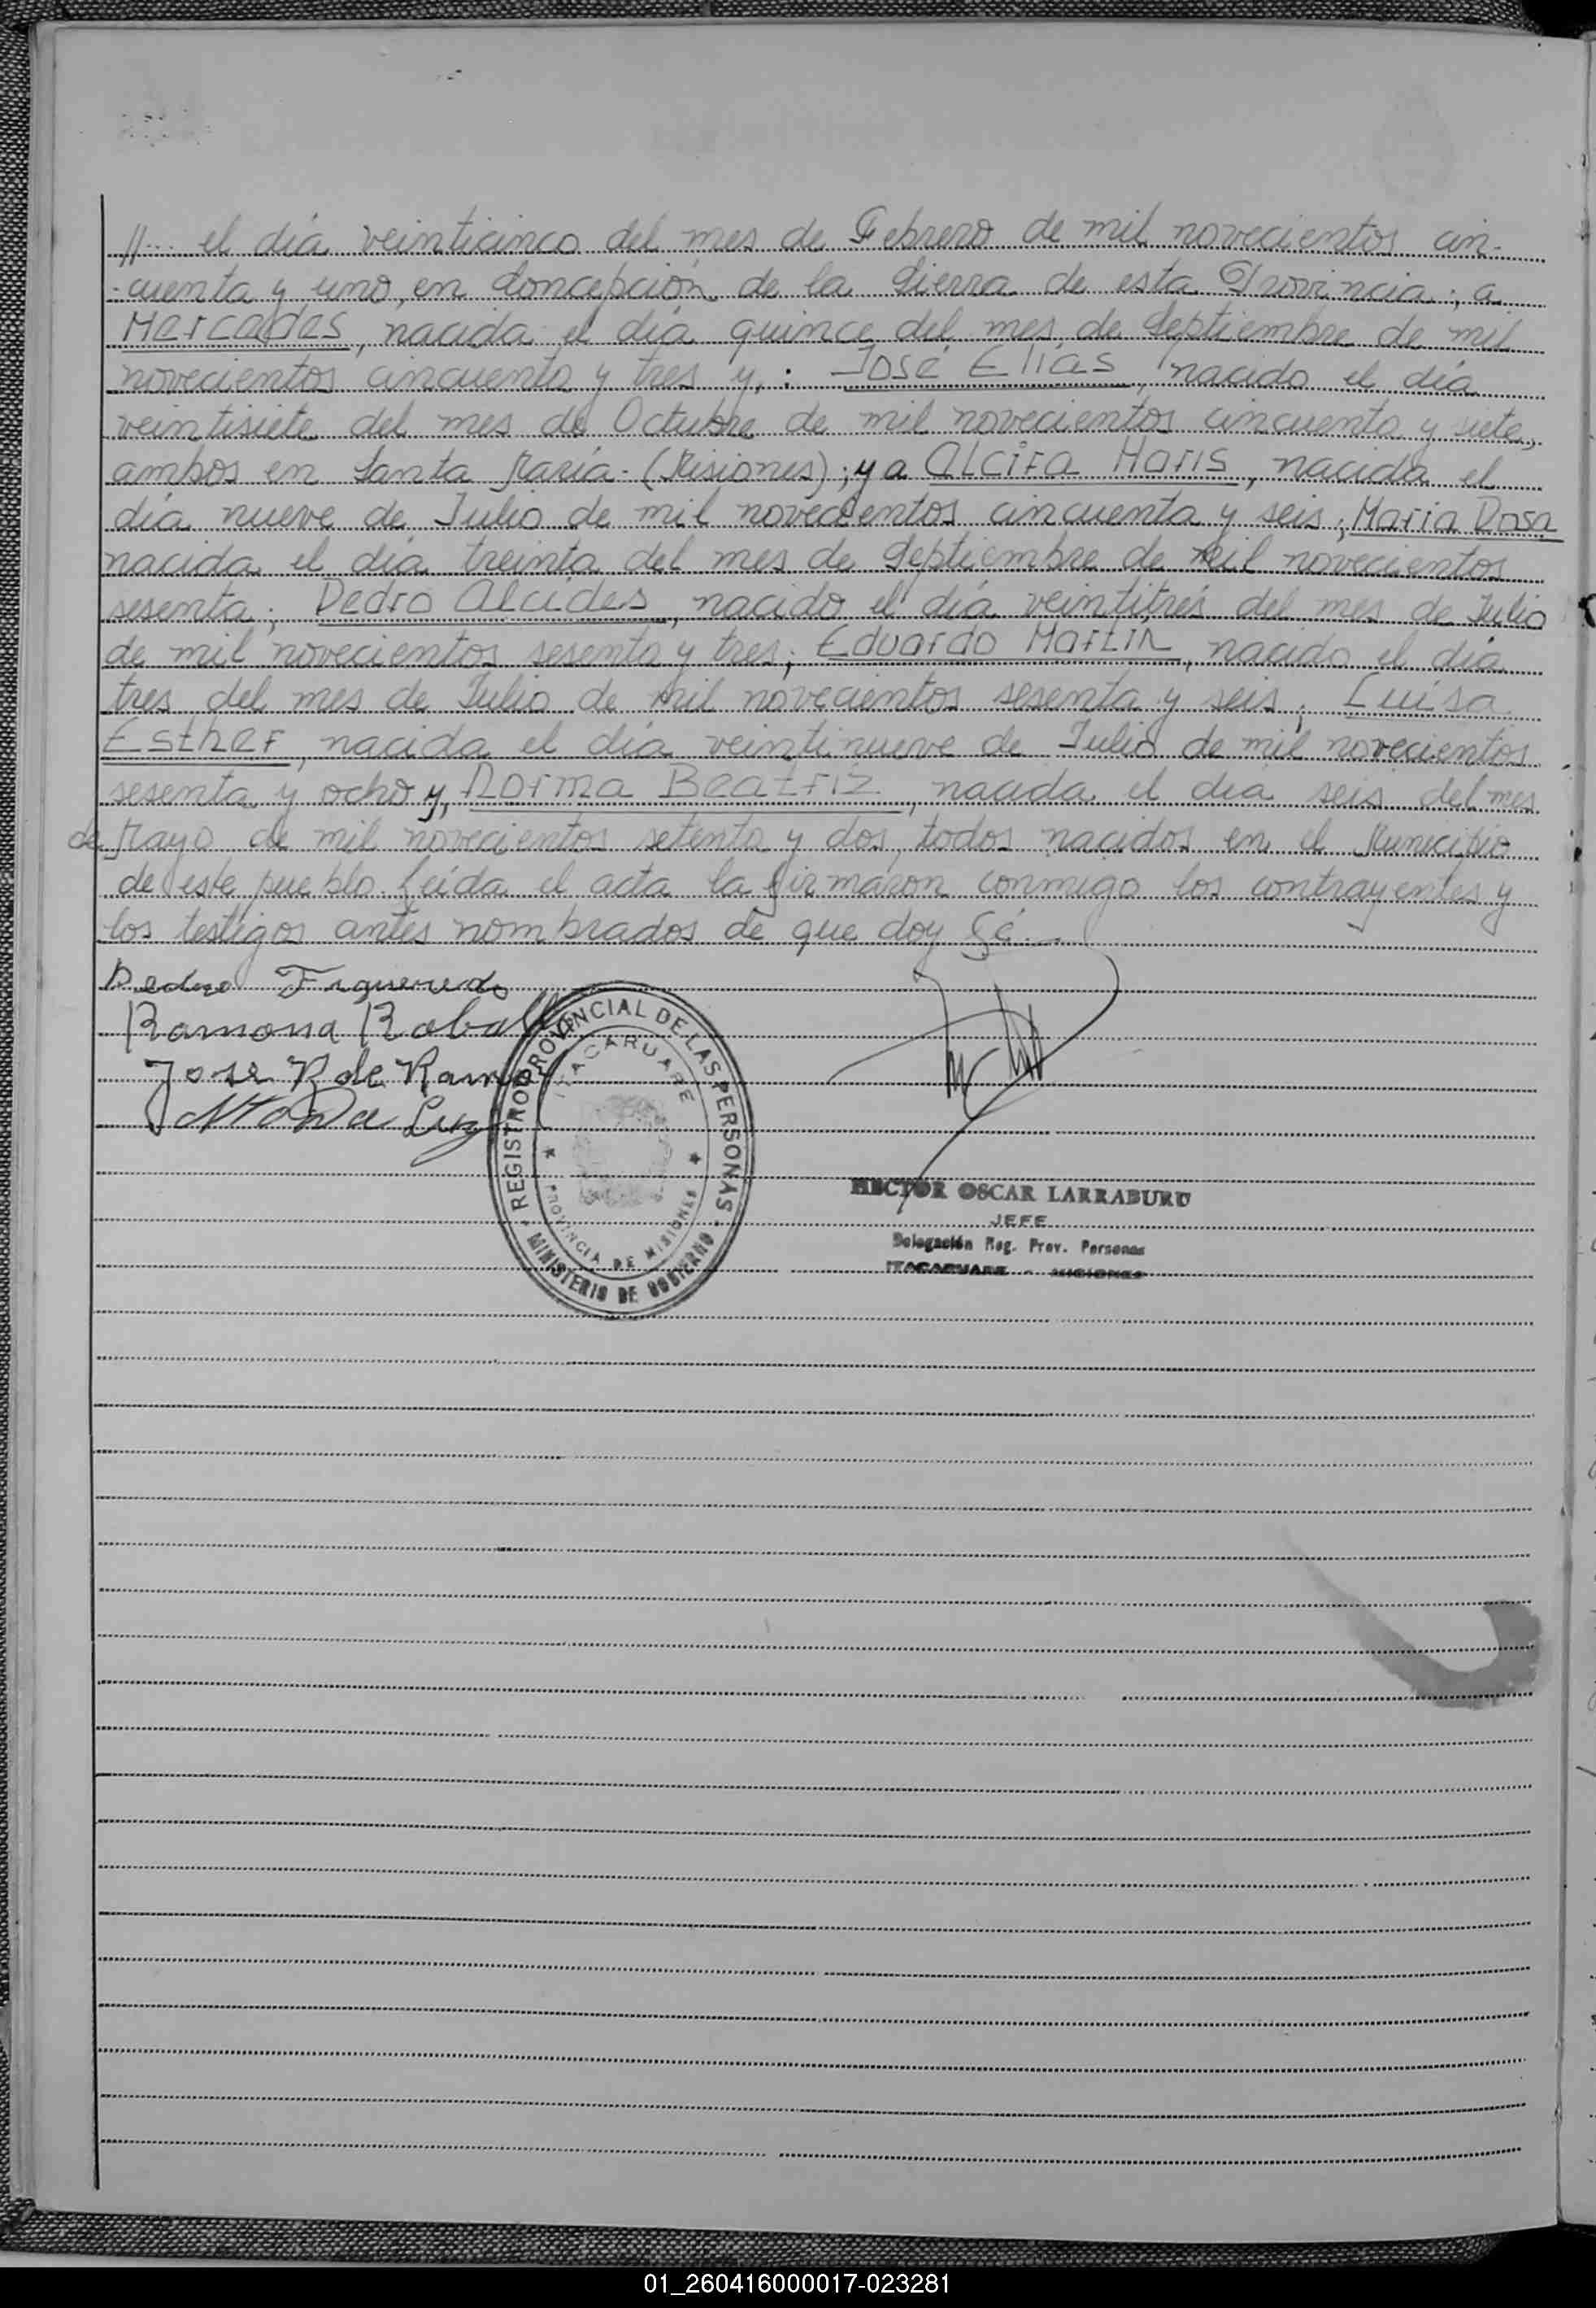 //... el día veinticinco del mes de Febrero de mil novecientos cin-
-cuenta y uno, en Concepción de la Sierra de esta Provincia; a
Mercedes, nacida el día quince del mes de Septiembre de mil
novecientos cincuenta y tres y, : José Elías, nacido el día
veintisiete del mes de Octubre de mil novecientos cincuenta y siete,
ambos en Santa María - (Misiones); y a Alcira Maris, nacida el
día nueve de Julio de mil novecientos cincuenta y seis; Maria Rosa
nacida el día treinta del mes de Septiembre de mil novecientos
sesenta; Pedro Alcides, nacido el día veintitrés del mes de Julio
de mil novecientos sesenta y tres; Eduardo Martín, nacido el día
tres del mes de Julio de mil novecientos sesenta y seis; Luisa
Esther, nacida el día veintinueve de Julio de mil novecientos
sesenta y ocho y, Norma Beatriz, nacida el día seis del mes
de Mayo de mil novecientos setenta y dos, todos nacidos en el Municipio
de este pueblo. Leída el acta la firmaron conmigo los contrayentes y
los testigos antes nombrados de que doy fé.-
Pedro Figueredo
Ramona Rabal
Jose R de Ramos
Da Luz
REGISTRO PROVINCIAL DE LAS PERSONAS
ITACARUARE
PROVINCIA DE MISIONES
MINISTERIO DE GOBIERNO
HECTOR OSCAR LARRABURU
JEFE
Delegación Reg. Prov. Personas
ITACARUARE - MISIONES
01_260416000017-023281